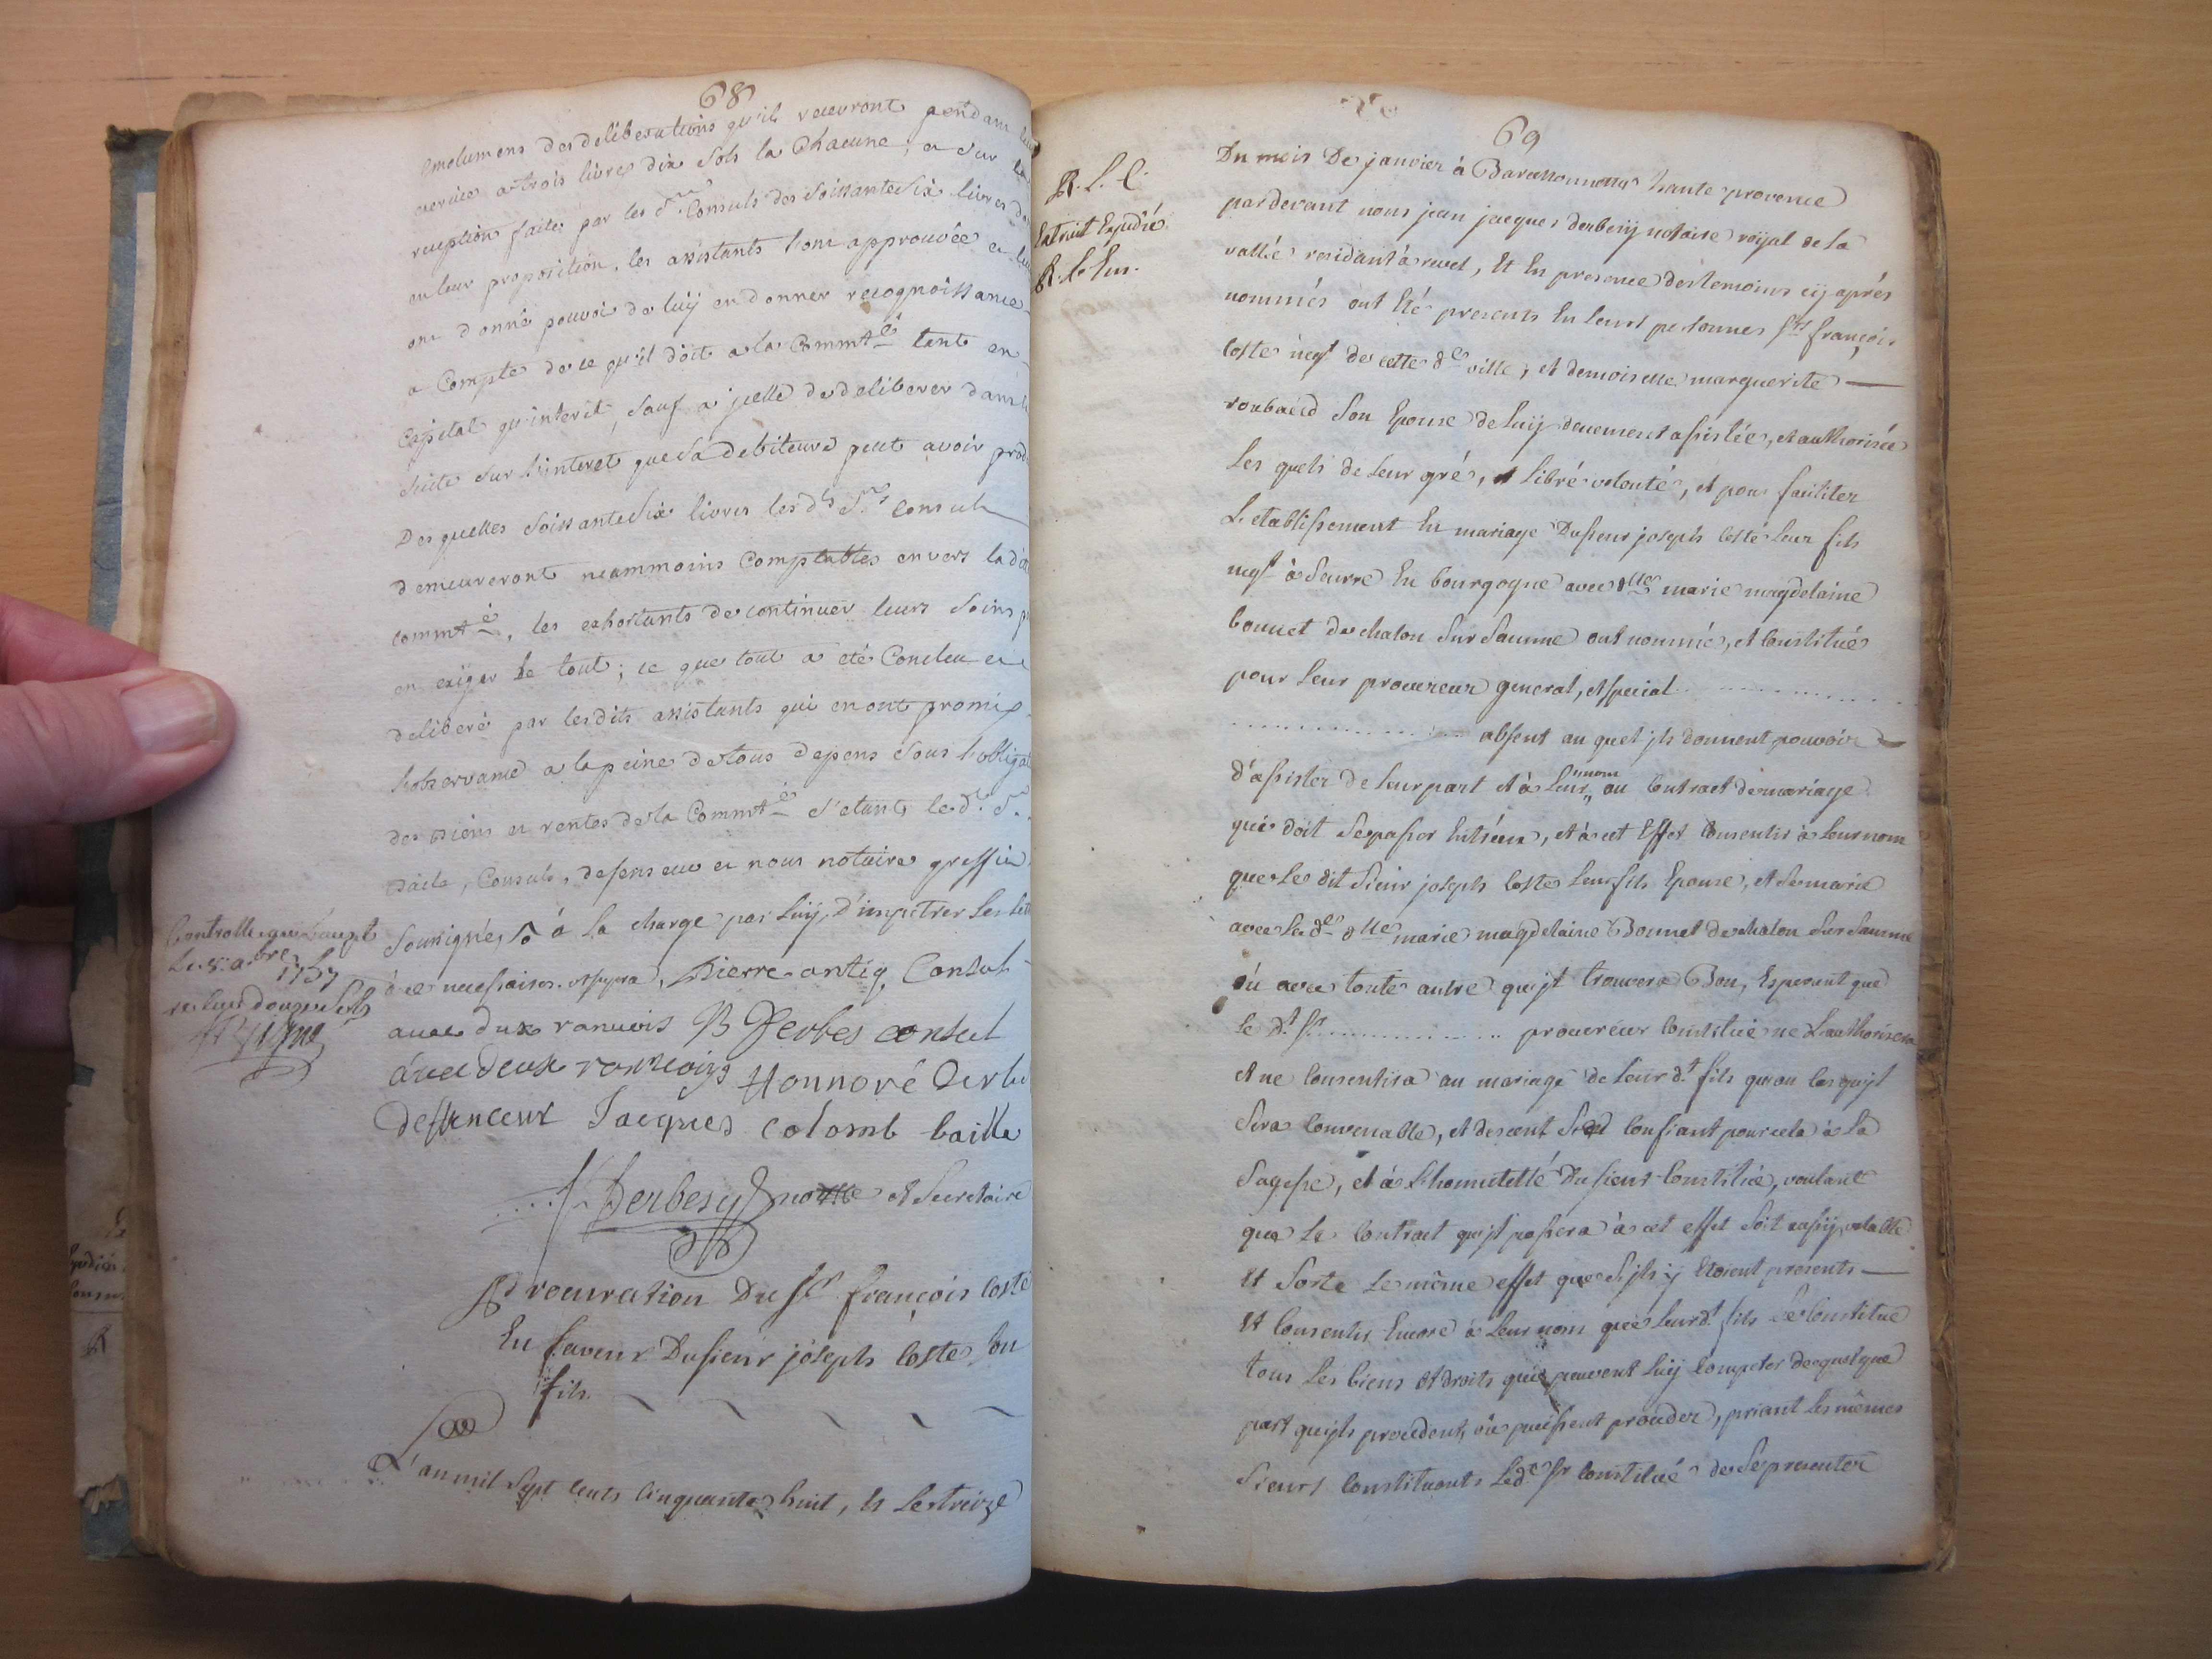 68
emolumens des deliberations qu'ils recevront pendant leur
exercice a trois livres dix sols la Chacune, et sur la
reception faite par les Srs Consuls des soissante six livres de
en leur proposition, les assistants l'ont approuvée et leur
ont donné pouvoir de luy en donner recognoissance
a Compte de ce qu'il doit a la Commté tant en
Capital qu'interet, sauf a jcelle de deliberer dans la
suite sur l'interet que sa debiteure peut avoir prod
Desquelles soissante six livres les ds Srs Consuls
demeureront neammoins Comptables envers lad
commté, les exhortants de continuer leurs soins p
en exiger le tout; ce que tout a eté Conclu et
deliberé par lesdits assistants qui en ont promis
l'observance a la peine de tous depens sous l'obliga
des biens et rentes de la Commté s'etants led. Sr.
baile, Consuls, defenseur et nous notaire greffier
soussignés à la charge par luy d'impetrer les let
d ce necessaires. ut supra, Pierre antiq Consul
avec dux ranvois B Derbes consul
avec deux ranvois Honnoré Derbe
deffenceur Jacques colomb baille
Derbesy notre et Secretaire
Controllé au Lauzet
1757
Procuration Du sr françois coste
En faveur Du sieur joseph Coste son
fils.
L'an mil sept cents cinquante huit, et le treize
69
R. L. C.
Extrait Expedié
Du mois De janvier à Barcelonnette haute provence
pardevant nous jean jacques derbesy notaire royal de la
vallée residant à revel, Et En presence des temoins cy après
nommés ont Eté presents En leurs personnes sr françois
Coste negt de cette de ville, et demoiselle marguerite
roubaud son Epouse de luy deuement assistée, et authorisée
Les quels de leur gré, et libre volonté, et pour faciliter
L'etablissement En mariage Du sieur joseph Coste leur fils
negt à Seurre En bourgogne avec dlle marie magdelaine
bonnet de chalon sur saunne ont nommé, et Constitué
pour leur procureur general, et special . . . . . . . . . . .
. . . . . . . . . . . . . . . . absent au quel jls donnent pouvoir
d'assister de leur part et à leur nom au Contract de mariage
qui doit se passer Entr'eux, et à cet Effet Consentir à leur nom
que le dit sieur joseph Coste leur fils Epouse, et se marie
avec la de dlle marie magdelaine Bonnet de chalon sur saunne
où avec toute autre qu'jl trouvera Bon, Esperant que
le dt sr . . . . . . . . . . . procureur Constitué ne L'authorisera
et ne Consentira au mariage de leur dt fils qu'au cas qu'jl
sera Convenable, et decent se Confiant pour cela à la
sagesse, et à L'honnetetté Du sieur Constitué, voulant
que le Contract qu'jl passera à cet effet soit aussy valable
et sorte le même effet que s'jls y Etoient presents
Et Consentir Encore à leur nom que leur dt fils se Constitue
tous les biens et droits qui peuvent luy Competer de quelque
part qu'jls procedent, où puissent proceder, priant les mêmes
sieurs Constituants led sr Constitué de se presenter